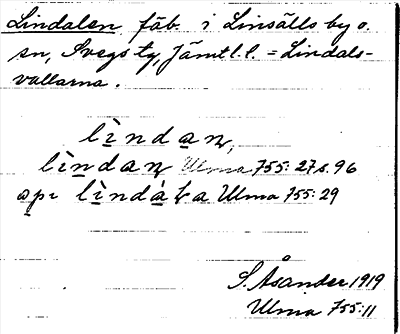 Lindalen fäb. i Linsälls by o.
sn, Svegs tg, Jämtl. l. = Lindals-
vallarna.
lìndaɳ,
lìndaɳ Ulma 755:27 s. 96
api lìndàɽa Ulma 755:29
S. Åsander 1919
Ulma 755:11